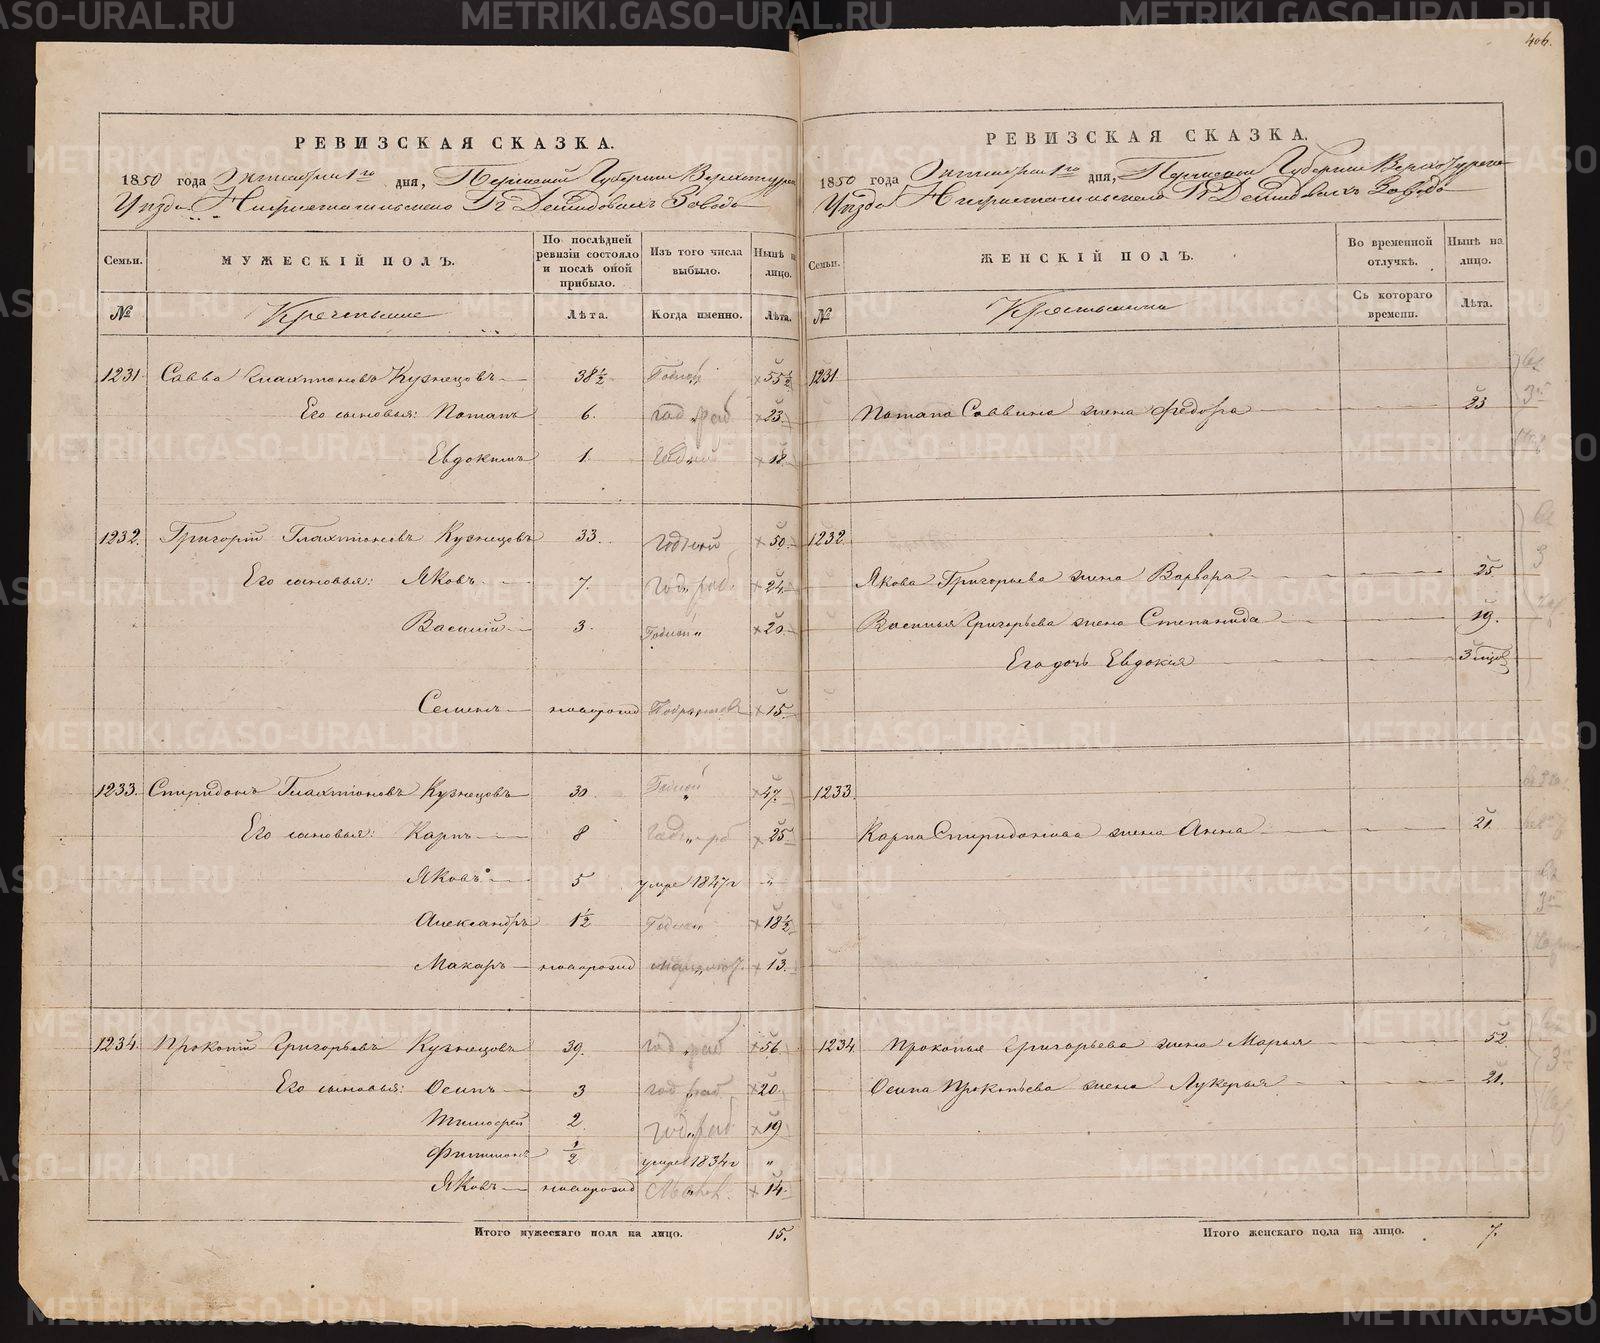 406.
РЕВИЗСКАЯ СКАЗКА.
1850 года Октября 1го дня, Пермской Губернии Верхотурскаго
Уѣзда Нижнетагильскаго Гг Демидовыхъ Завода
Семьи. МУЖЕСКІЙ ПОЛЪ. По послѣдней ревизіи состояло и послѣ оной прибыло. Изъ того числа выбыло. Нынѣ на лицо.
№ Крестьяне Лѣта. Когда именно. Лѣта.
1231. Савва Кузнецовъ 38½ Годной 55½
Его сыновья: Потапъ 6. год раб 23
Евдокимъ 1. Годной 18
1232. Григорій Кузнецовъ 33. Годной 50
Его сыновья: Яковъ 7. Год раб 24
Василій 3. Годной 20
Семенъ новорожд 15
1233. Спиридонъ Кузнецовъ 30 Годной 47.
Его сыновья: Карпъ 8 Год раб 25
Яковъ 5 умре 1847г "
Александръ 1½ Годной 18½
Макаръ новорожд 13
1234. Прокопій Григорьевъ Кузнецовъ 39. год раб 56
Его сыновья: Осипъ 3 год раб 20
Тимофей 2. год раб 19
Филимонъ ½ умре 1834г "
Яковъ новорожд 14
Итого мужескаго пола на лицо. 15.
РЕВИЗСКАЯ СКАЗКА.
1850 года Октября 1го дня, Пермской Губернии Верхотурскаго
Уѣзда Нижнетагильскаго Гг Демидовыхъ Завода
Семьи. ЖЕНСКІЙ ПОЛЪ. Во временной отлучкѣ. Нынѣ на лицо.
№ Крестьянки Съ котораго времени. Лѣта.
1231.
Потапа Саввина жена Федора 23
1232.
Якова Григорьева жена Варвара 25
Василья Григорьева жена Степанида 19.
Его дочь Евдокія 3 мѣс
1233.
Карпа Спиридонова жена Анна 21
1234. Прокопья Григорьева жена Марья 52
Осипа Прокопьева жена Лукерья 21.
Итого женскаго пола на лицо. 7.
METRIKI.GASO-URAL.RU